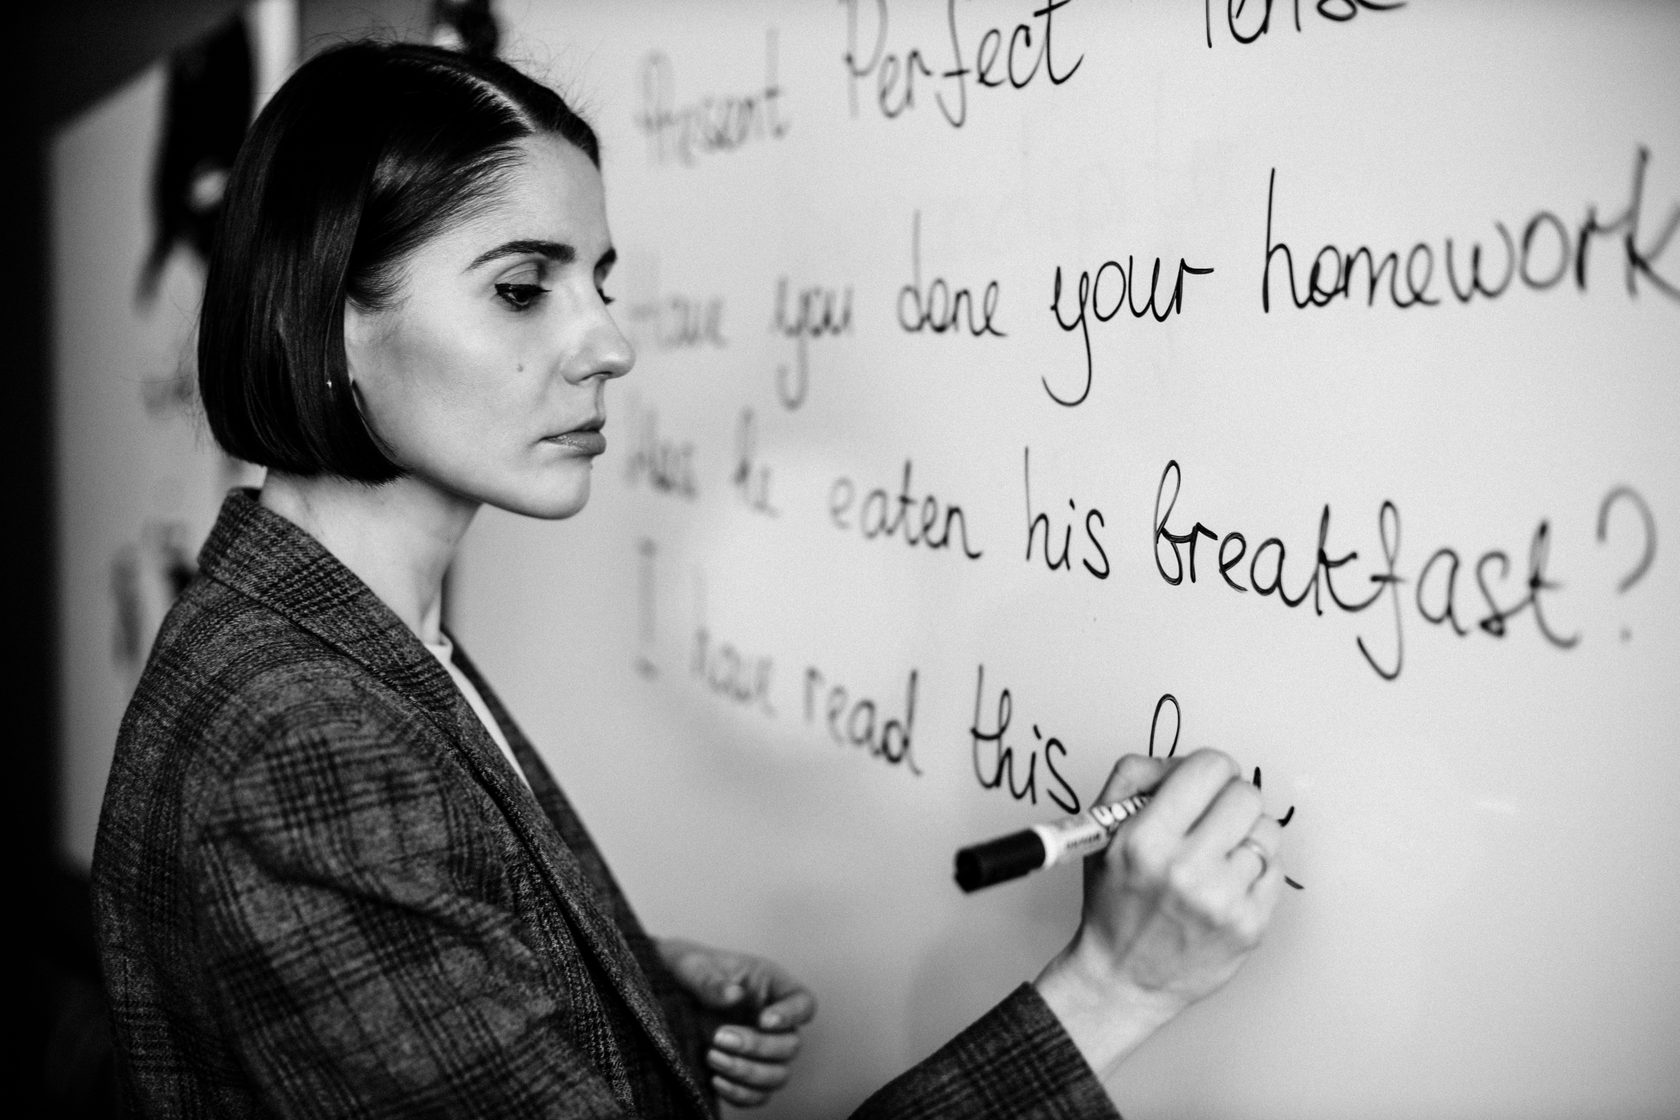 Present Perfect Tense
Have you done your homework
Has he eaten his breakfast?
I have read this